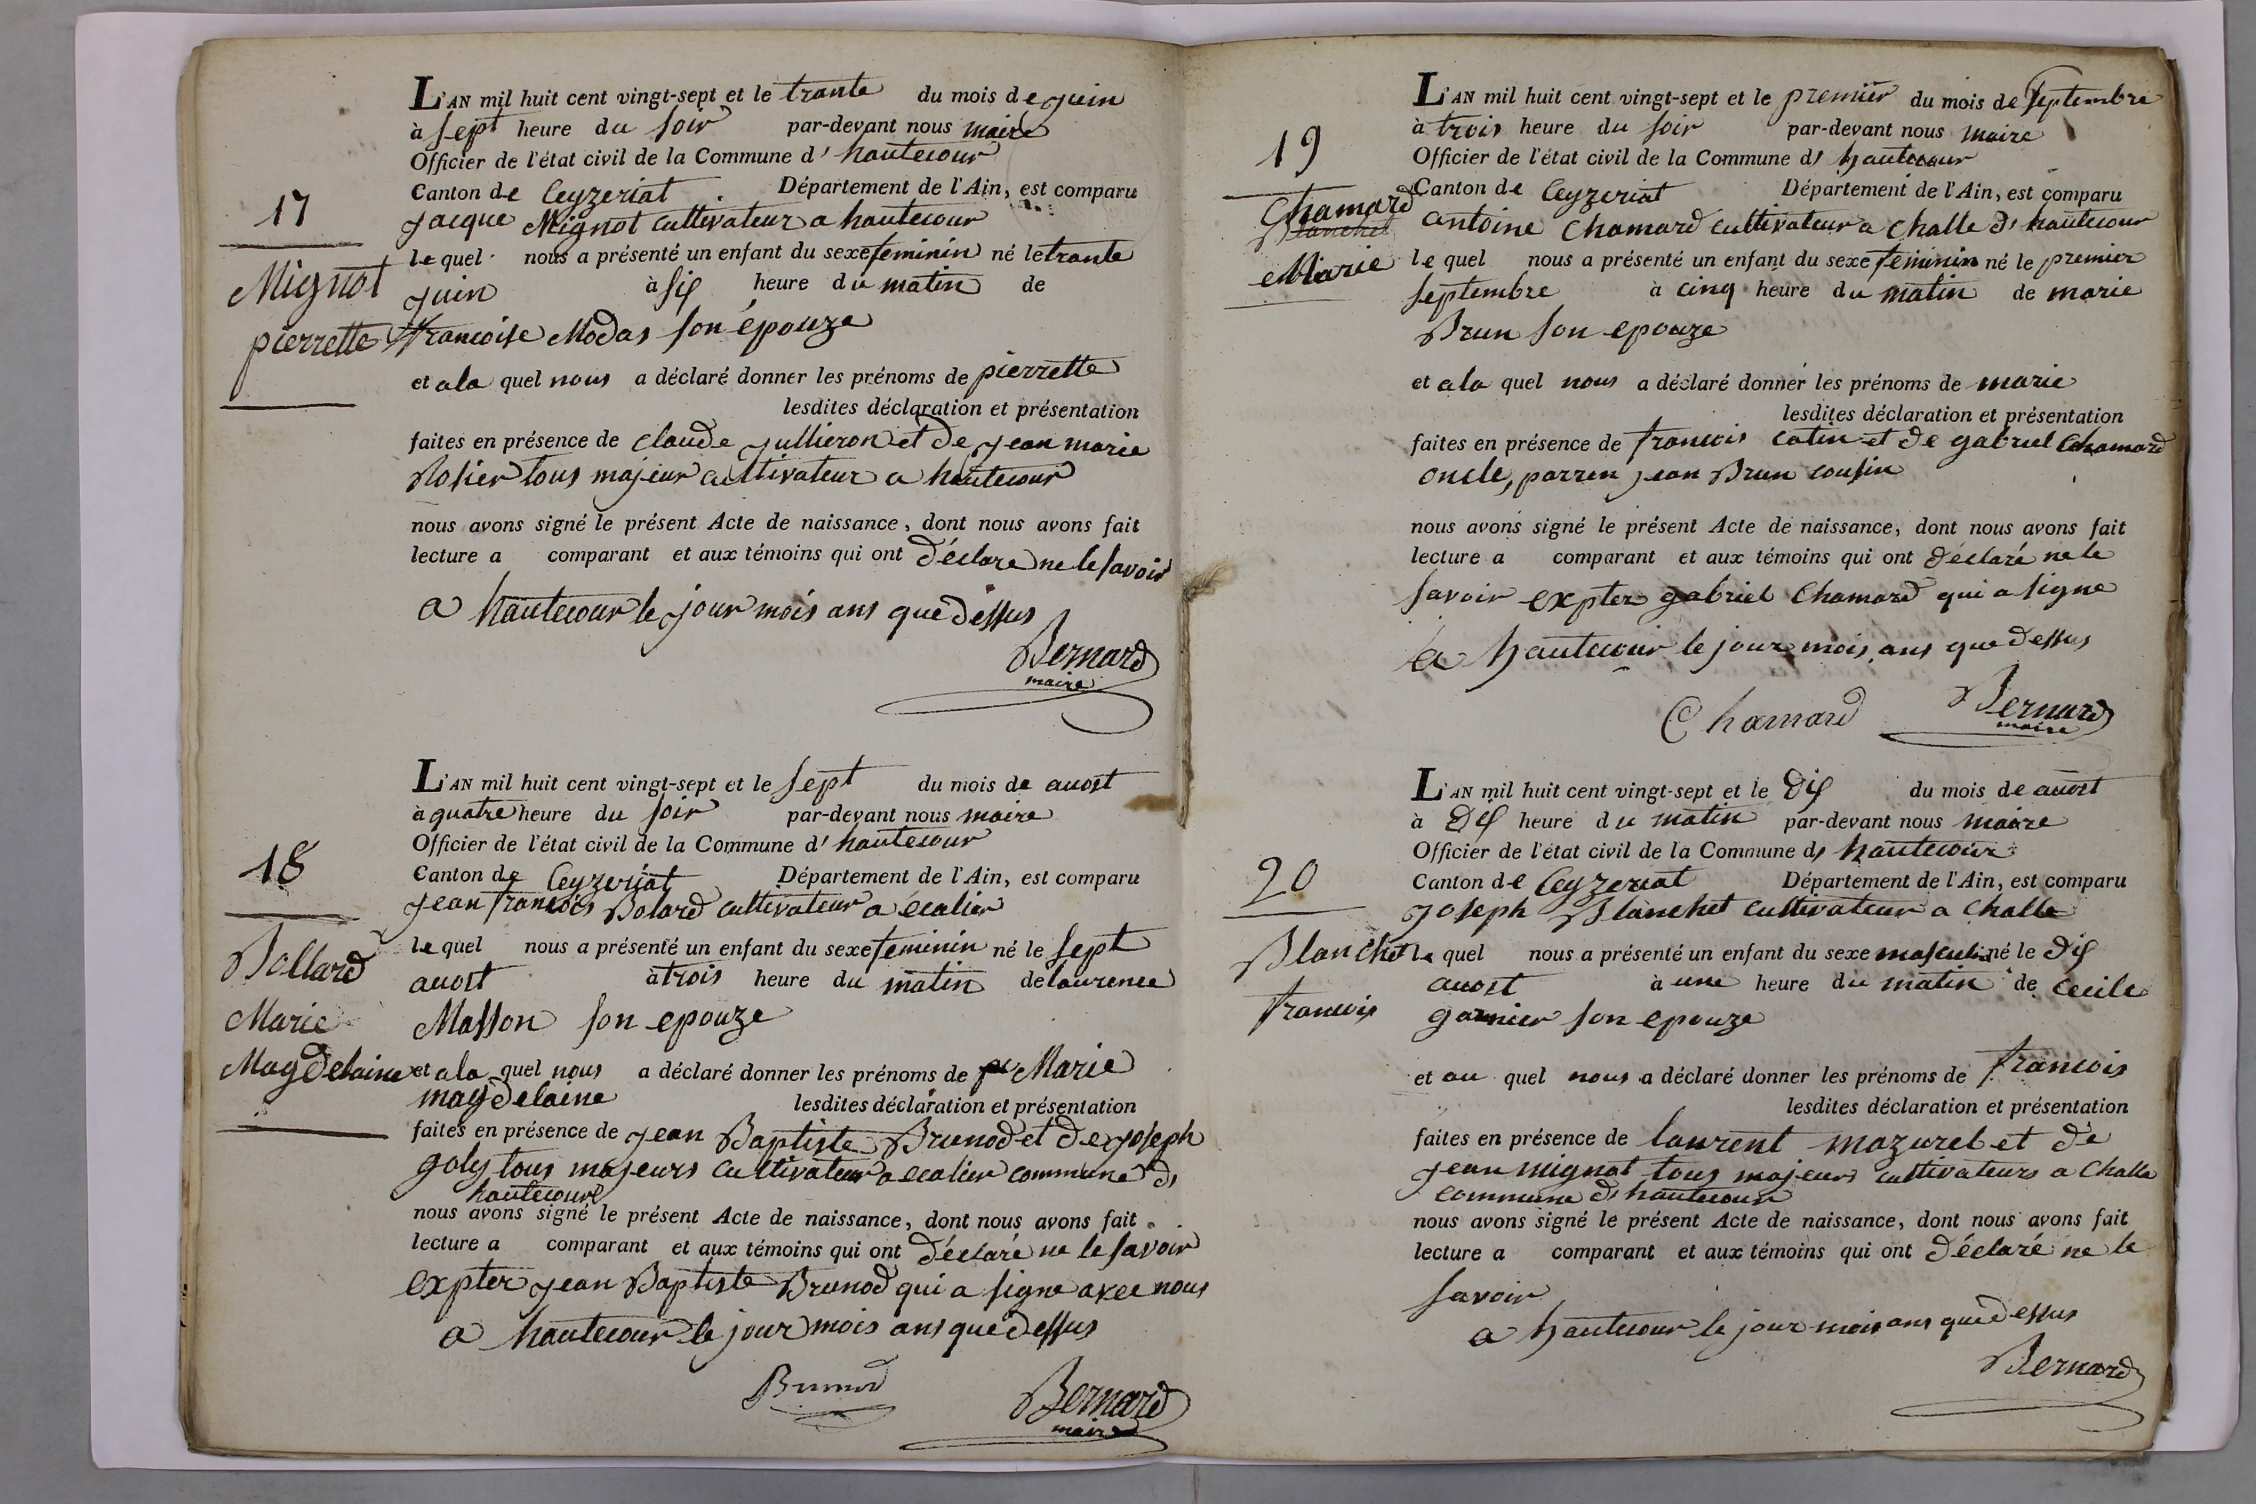 17
Mignot
pierrette
L'AN mil huit cent vingt-sept et le trante du mois de juin
à sept heure du soir par-devant nous maire
Officier de l'état civil de la Commune d' hautecour
Canton de Ceyzeriat Département de l'Ain, est comparu
jacque Mignot cultivateur a hautecour
le quel nous a présenté un enfant du sexe feminin né le trante
juin à six heure du matin de
francoise Modas son épouze
et a la quel nous a déclaré donner les prénoms de pierrette
lesdites déclaration et présentation
faites en présence de claude jullieron et de jean marie
Rosier tous majeur cultivateur a hautecour
nous avons signé le présent Acte de naissance, dont nous avons fait
lecture a comparant et aux témoins qui ont déclare ne le savoir
a hautecour le jour mois ans que dessus
Bernard
maire
18
Bollard
Marie
Magdelaine
L'AN mil huit cent vingt-sept et le sept du mois de auost
à quatre heure du soir par-devant nous maire
Officier de l'état civil de la Commune d' hautecour
Canton de Ceyzeriat Département de l'Ain, est comparu
jean francois Bolard cultivateur a écalier
le quel nous a présenté un enfant du sexe feminin né le sept
auost à trois heure du matin de laurence
Masson son epouze
et a la quel nous a déclaré donner les prénoms de Marie
magdelaine lesdites déclaration et présentation
faites en présence de jean Baptiste Brunod et de joseph
goly tous majeurs cultivateur a ecalier commune d'
hautecour
nous avons signé le présent Acte de naissance, dont nous avons fait
lecture a comparant et aux témoins qui ont déclaré ne le savoir
expter jean Baptiste Brunod qui a signe avec nous
a hautecour le jour mois ans que dessus
Brunod
Bernard
maire
19
Chamard
Blanchet
Marie
L'AN mil huit cent vingt-sept et le premier du mois de septembre
à trois heure du soir par-devant nous maire
Officier de l'état civil de la Commune d' hautecour
Canton de Ceyzeriat Département de l'Ain, est comparu
antoine Chamard cultivateur a Challe d' hautecour
le quel nous a présenté un enfant du sexe feminin né le premier
septembre à cinq heure du matin de marie
Brun son epouze
et a la quel nous a déclaré donner les prénoms de marie
lesdites déclaration et présentation
faites en présence de francois catin et de gabriel Chamard
oncle, parren jean Brun cousin
nous avons signé le présent Acte de naissance, dont nous avons fait
lecture a comparant et aux témoins qui ont déclaré ne le
savoir expter gabriel Chamard qui a signe
a hautecour le jour mois ans que dessus
Chamard
Bernard
maire
20
Blanchet
francois
L'AN mil huit cent vingt-sept et le dix du mois de auost
à dix heure du matin par-devant nous maire
Officier de l'état civil de la Commune d' hautecour
Canton de Ceyzeriat Département de l'Ain, est comparu
joseph Blanchet cultivateur a Challe
le quel nous a présenté un enfant du sexe masculin né le dix
auost à une heure du matin de cécile
garnier son epouze
et au quel nous a déclaré donner les prénoms de francois
lesdites déclaration et présentation
faites en présence de laurent mazurel et de
jean mignot tous majeurs cultivateurs a Challe
commune d' hautecour
nous avons signé le présent Acte de naissance, dont nous avons fait
lecture a comparant et aux témoins qui ont déclaré ne le
savoir
a hautecour le jour mois ans que dessus
Bernard